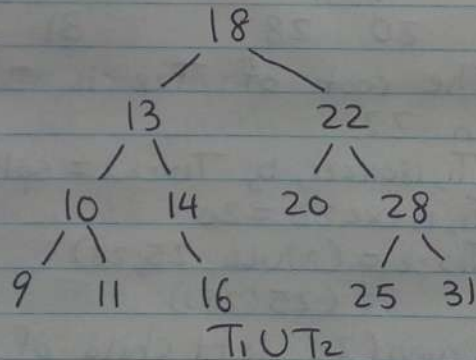 18
13 22
10 14 20 28
9 11 16 25 31
T₁UT₂